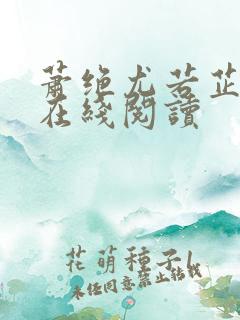 蕭绝尤若芷
在綫閱讀
花萌種子l
未经同意禁止转载